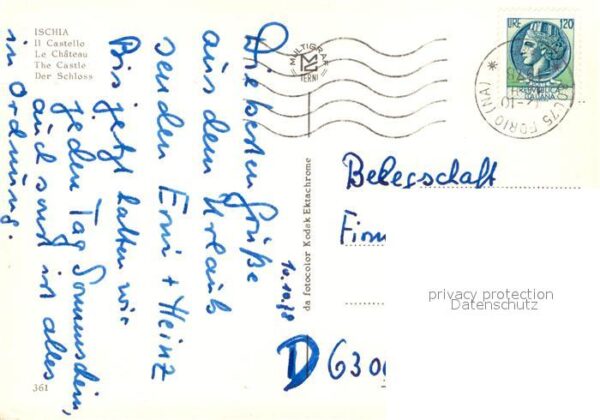 ISCHIA
Il Castello
Le Château
The Castle
Der Schloss
Die besten Grüße
aus dem Urlaub
senden Erni + Heinz
Bis jetzt hatten wir
jeden Tag Sonnenschein,
auch sonst ist alles
in Ordnung.
10.10.78
361
MULTIGRAF
TERNI
da fotocolor Kodak Ektachrome
LIRE 120
REPUBBLICA
ITALIANA
80075 FORIO (NA)
Belegschaft
Firm
privacy protection
Datenschutz
D 6300